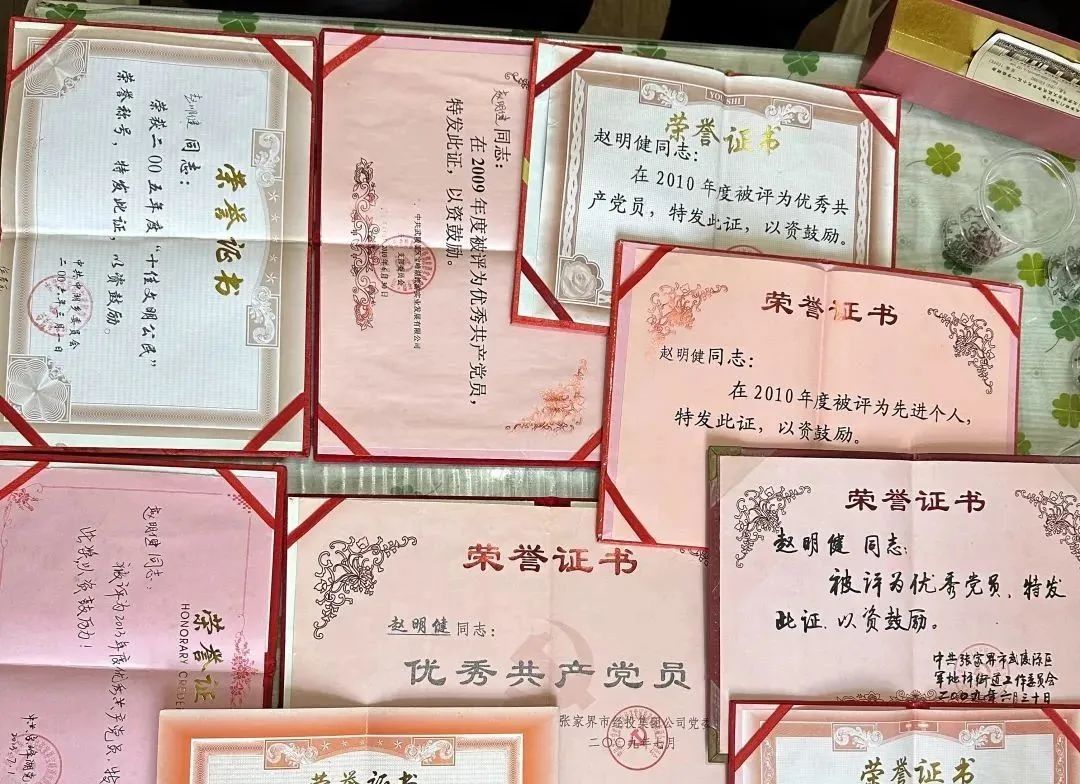 荣誉证书
同志：
荣获二00五年度“十佳文明公民”
荣誉称号，特发此证，以资鼓励。
中共中湖乡委员会
二00六年三月一日
赵明健同志：
在2009年度被评为优秀共产党员，
特发此证，以资鼓励。
YOU SHI
荣誉证书
赵明健同志：
在2010年度被评为优秀共
产党员，特发此证，以资鼓励。
荣誉证书
赵明健同志：
在2010年度被评为先进个人，
特发此证，以资鼓励。
荣誉证
HONORARY CRE
赵明健同志：
被评为2013年度优秀共产党员，特
此证，以资鼓励！
荣誉证书
赵明健同志：
优秀共产党员
张家界市经投集团公司党委
二〇〇九年七月
荣誉证书
赵明健同志：
被评为优秀党员，特发
此证，以资鼓励。
中共张家界市武陵源区
军地坪街道工作委员会
二〇〇九年六月三十日
荣誉证书
荣誉证书